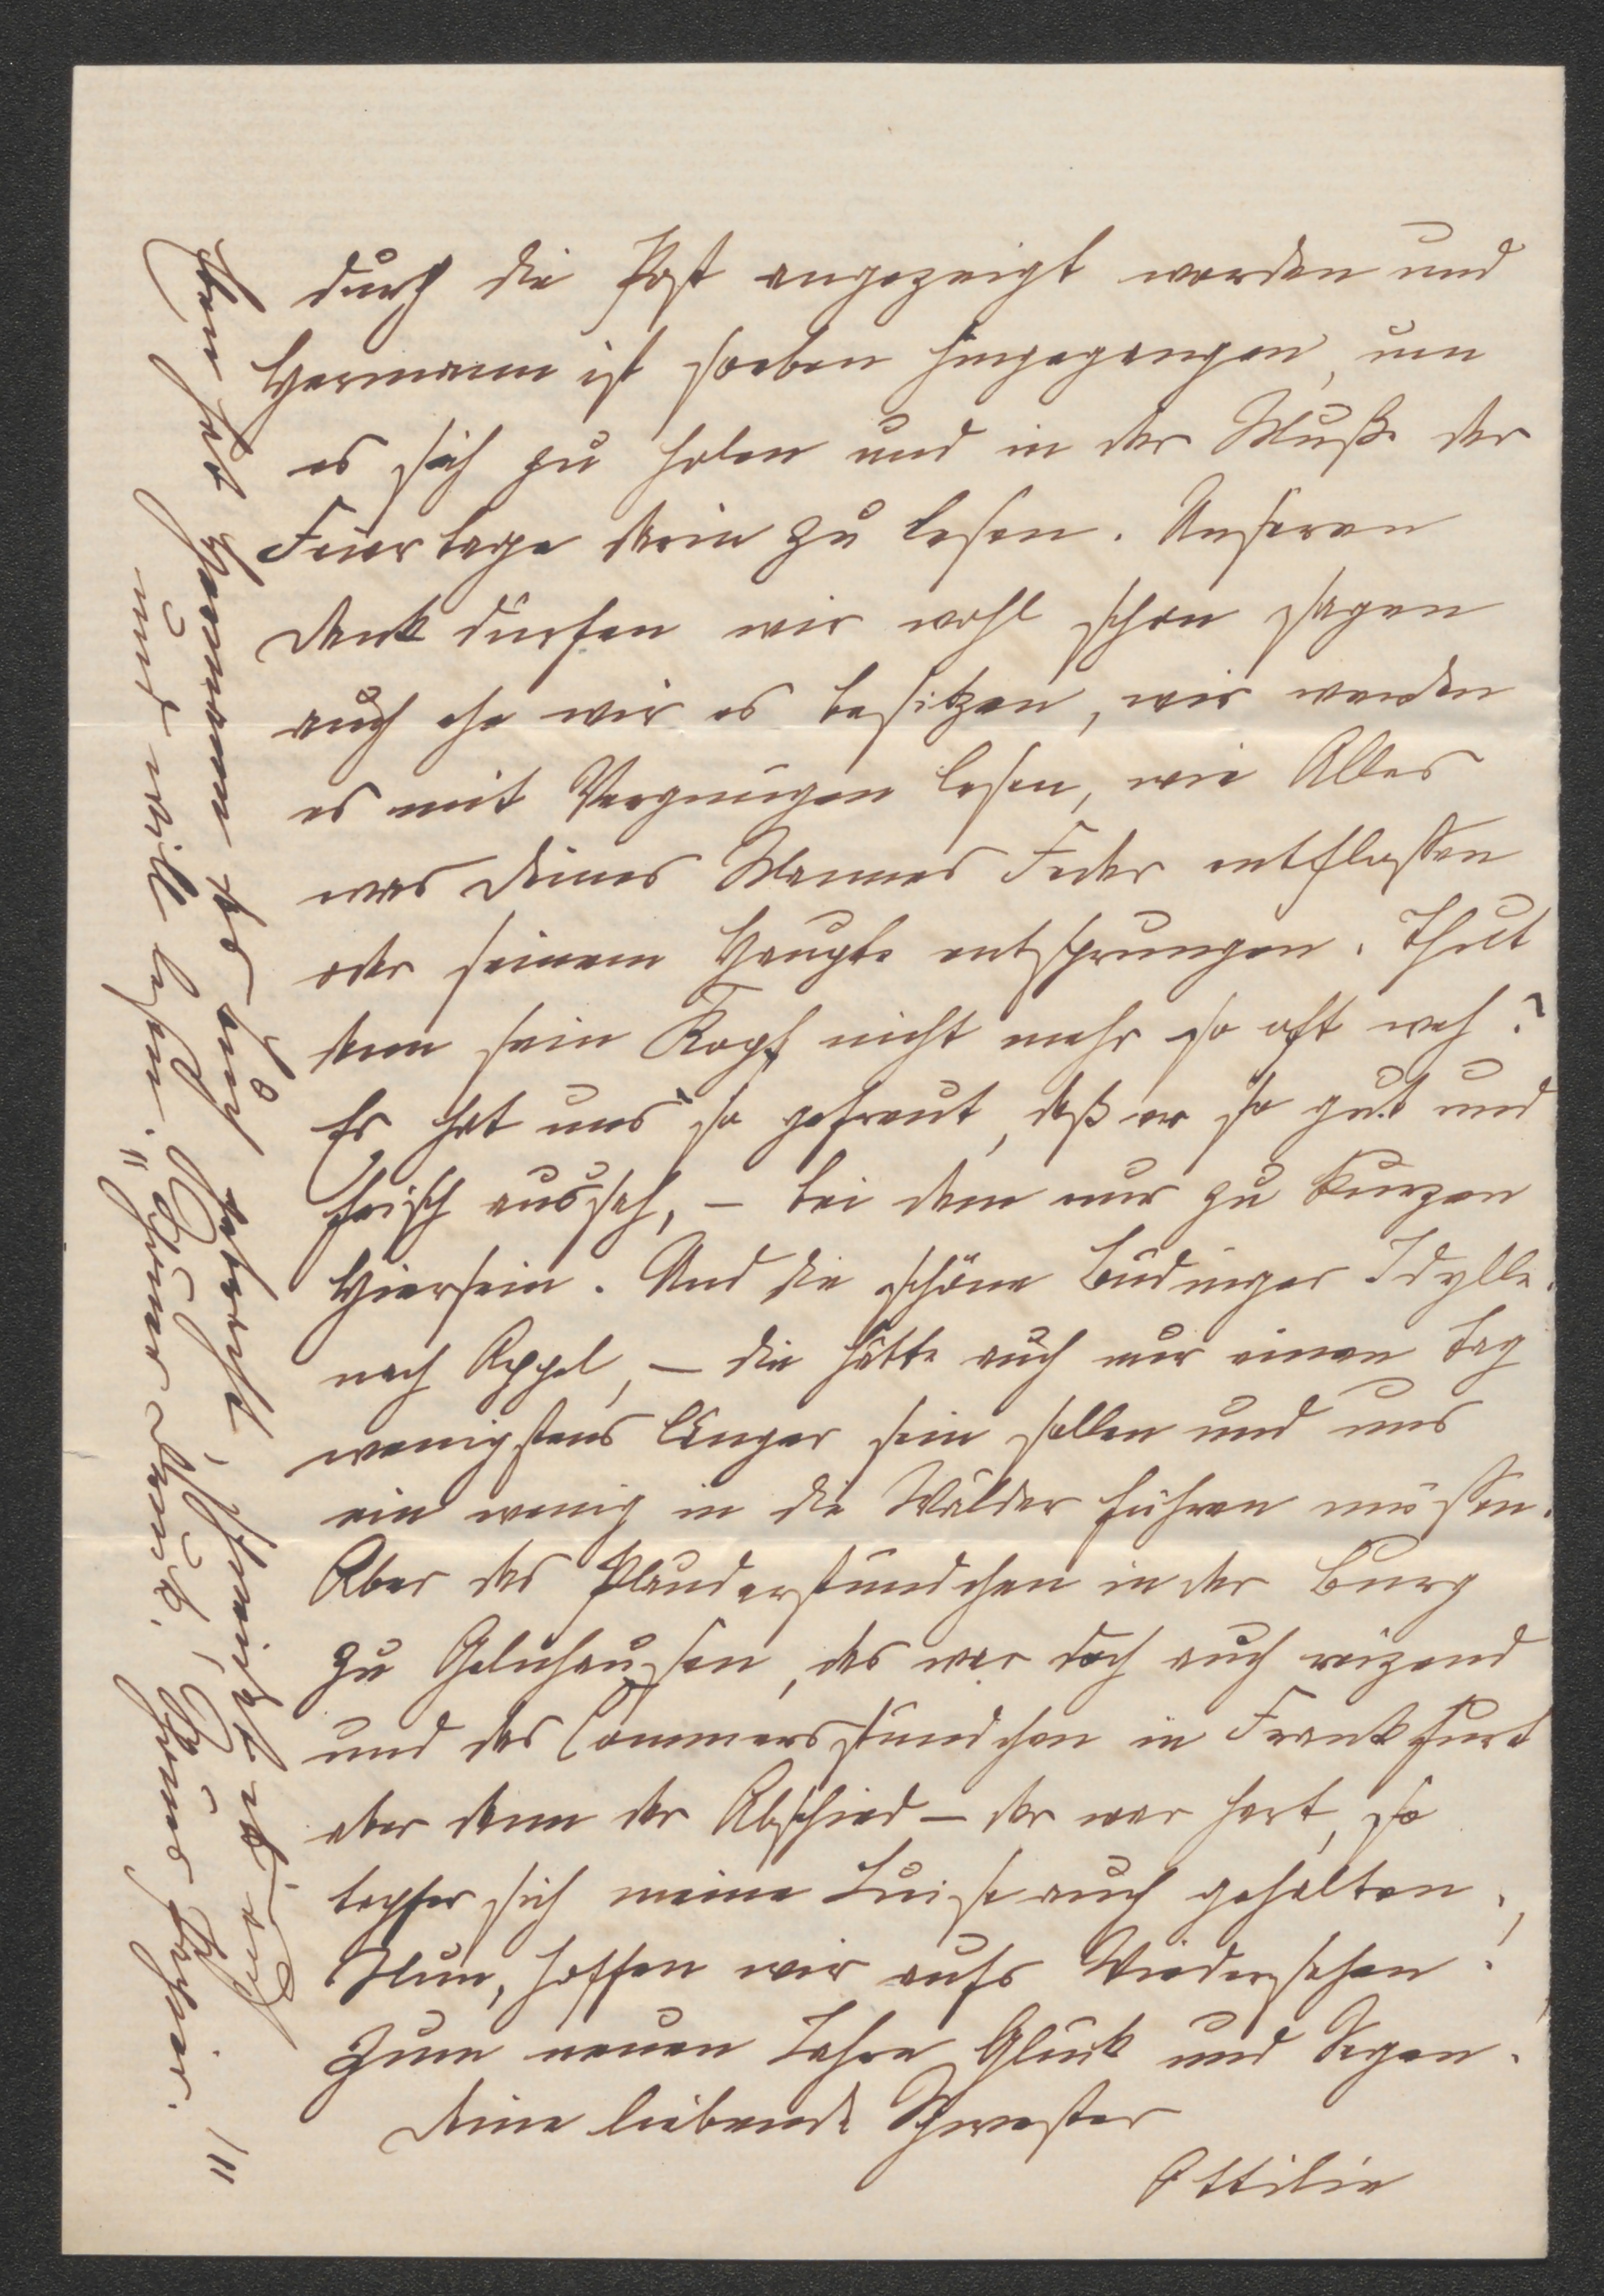 durch die Post angezeigt worden und
Hermann ist soeben hingegangen, um
es sich zu holen und in der Muße der
Feiertage darin zu lesen. Unseren
Dank dürfen wir wohl schon sagen
auch ehe wir es besitzen, wir werden
es mit Vergnügen lesen, wie Alles
was Deines Mannes Feder entflossen
oder seinem Haupte entsprungen. Thut
denn sein Kopf nicht mehr so oft weh?
Es hat uns so gefreut, daß er so gut und
frisch aussah, – bei dem nur zu kurzen
Hiersein. Und die schöne Büdinger Idylle
nach Appel, – die hätte auch nur einen Tag
wenigstens länger sein sollen und uns
ein wenig in die Wälder führen müssen.
Aber das Plauderstündchen in der Burg
zu Gelnhausen, das war doch auch reizend
und das Commersstündchen in Frankfurt
aber dann der Abschied – der war hart, so
tapfer sich meine Luise auch gehalten.
Nun, hoffen wir aufs Wiedersehen!
Zum neuen Jahre Glück und Segen.
Deine liebende Schwester
Ottilie
Eben hat Hermann das Buch gebracht, 
und will lesen. "Schöner Druck, schönes Papier."